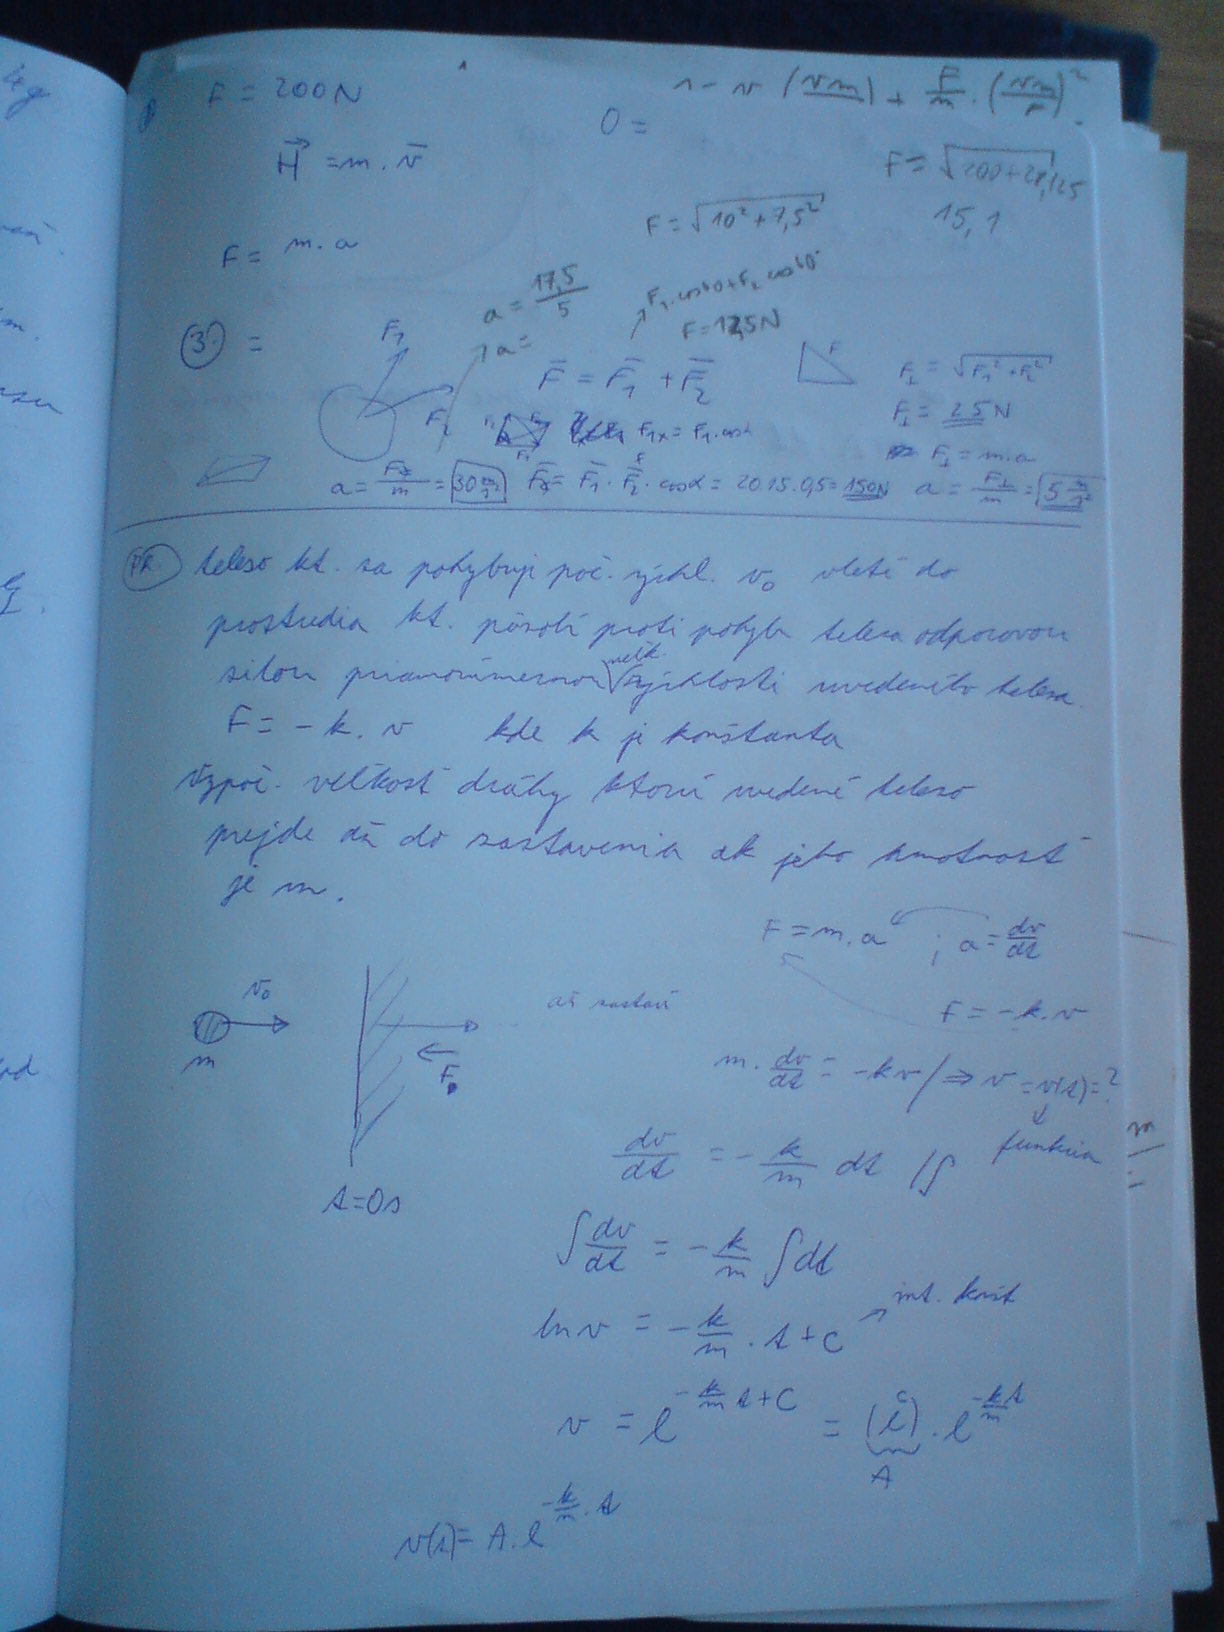 F = 200N
0 =
H = m . v
F = √200+28,125
15,1
F = √10² + 7,5²
F = m . a
a = 17,5 / 5
F₁ . cos60 + F₂ cos60°
F = 17,5N
a =
3. =
F₁
F₂
F = F₁ + F₂
F
F⊥ = √F₁² + F₂²
F⊥ = 25N
F₁ₓ = F₁ . cosα
F⊥ = m.a
a = F / m = 30 m/s²
F = F₁ . F₂ . cosα = 20.15.0,5 = 150N
a = F⊥ / m = 5 m/s²
PR. teleso kt. sa pohybuje poč. rýchl. v₀ vletí do
prostredia kt. pôsobí proti pohybu telesa odporovou
silou priamoúmernou velk. rýchlosti uvedeného telesa.
F = - k . v kde k je konštanta
Vypoč. veľkosť dráhy ktorú uvedené teleso
prejde až do zastavenia ak jeho hmotnosť
je m.
F = m . a ; a = dv/dt
v₀
až zastaví
F = - k . v
m
F
m . dv/dt = - k v / ⇒ v = v(t) = ?
funkcia
dv/dt = - k/m dt /∫
t = 0s
∫ dv/dt = - k/m ∫ dt
int. konšt
ln v = - k/m . t + C
v = e^(- k/m t + C) = (e^c) . e^(- k/m t)
A
v(t) = A . e^(- k/m . t)